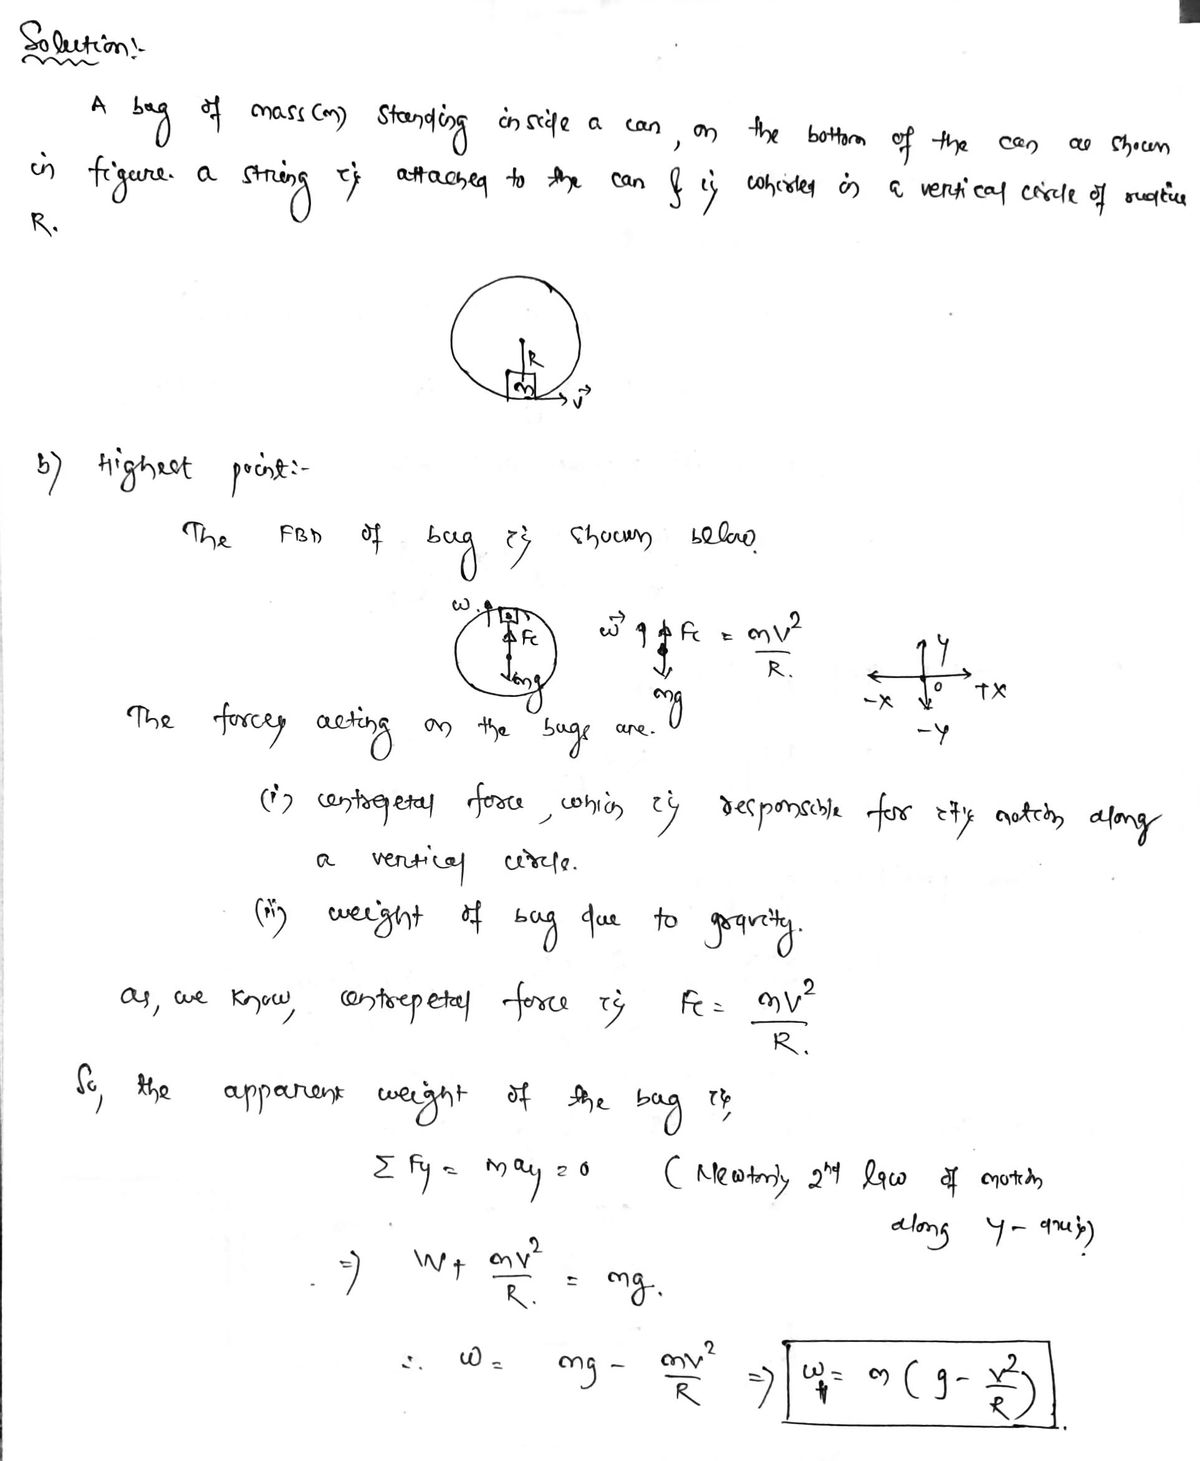 Solution:-
A bag of mass(m) standing inside a can, on the bottom of the can as shown
in figure. a string is attached to the can & is whirled in a vertical circle of radius
R.
R
m
v⃗
b) Highest point:-
The FBD of bag is shown below.
w
Fc
mg
w⃗ Fc = mv²/R.
mg
y
-x o +x
-y
The forces acting on the bags are.
(i) centrepetal force, which is responsible for its motion along
a vertical circle.
(ii) weight of bag due to gravity.
as, we know, centrepetal force is Fc = mv²/R.
So, the apparent weight of the bag is,
Σ Fy = may = 0 (Newton's 2nd law of motion
along y-axis)
⇒ W + mv²/R. = mg.
∴ w = mg - mv²/R ⇒ w = m (g - v²/R).